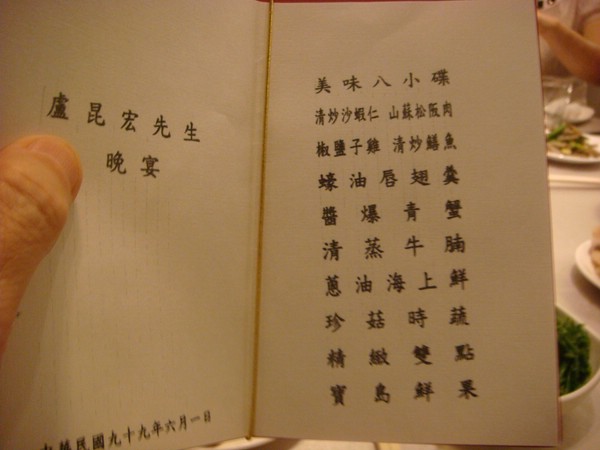 盧昆宏先生
晚宴
中華民國九十九年六月一日
美味八小碟
清炒沙蝦仁 山蘇松阪肉
椒鹽子雞 清炒鱔魚
蠔油唇翅羹
醬爆青蟹
清蒸牛腩
蔥油海上鮮
珍菇時蔬
精緻雙點
寶島鮮果